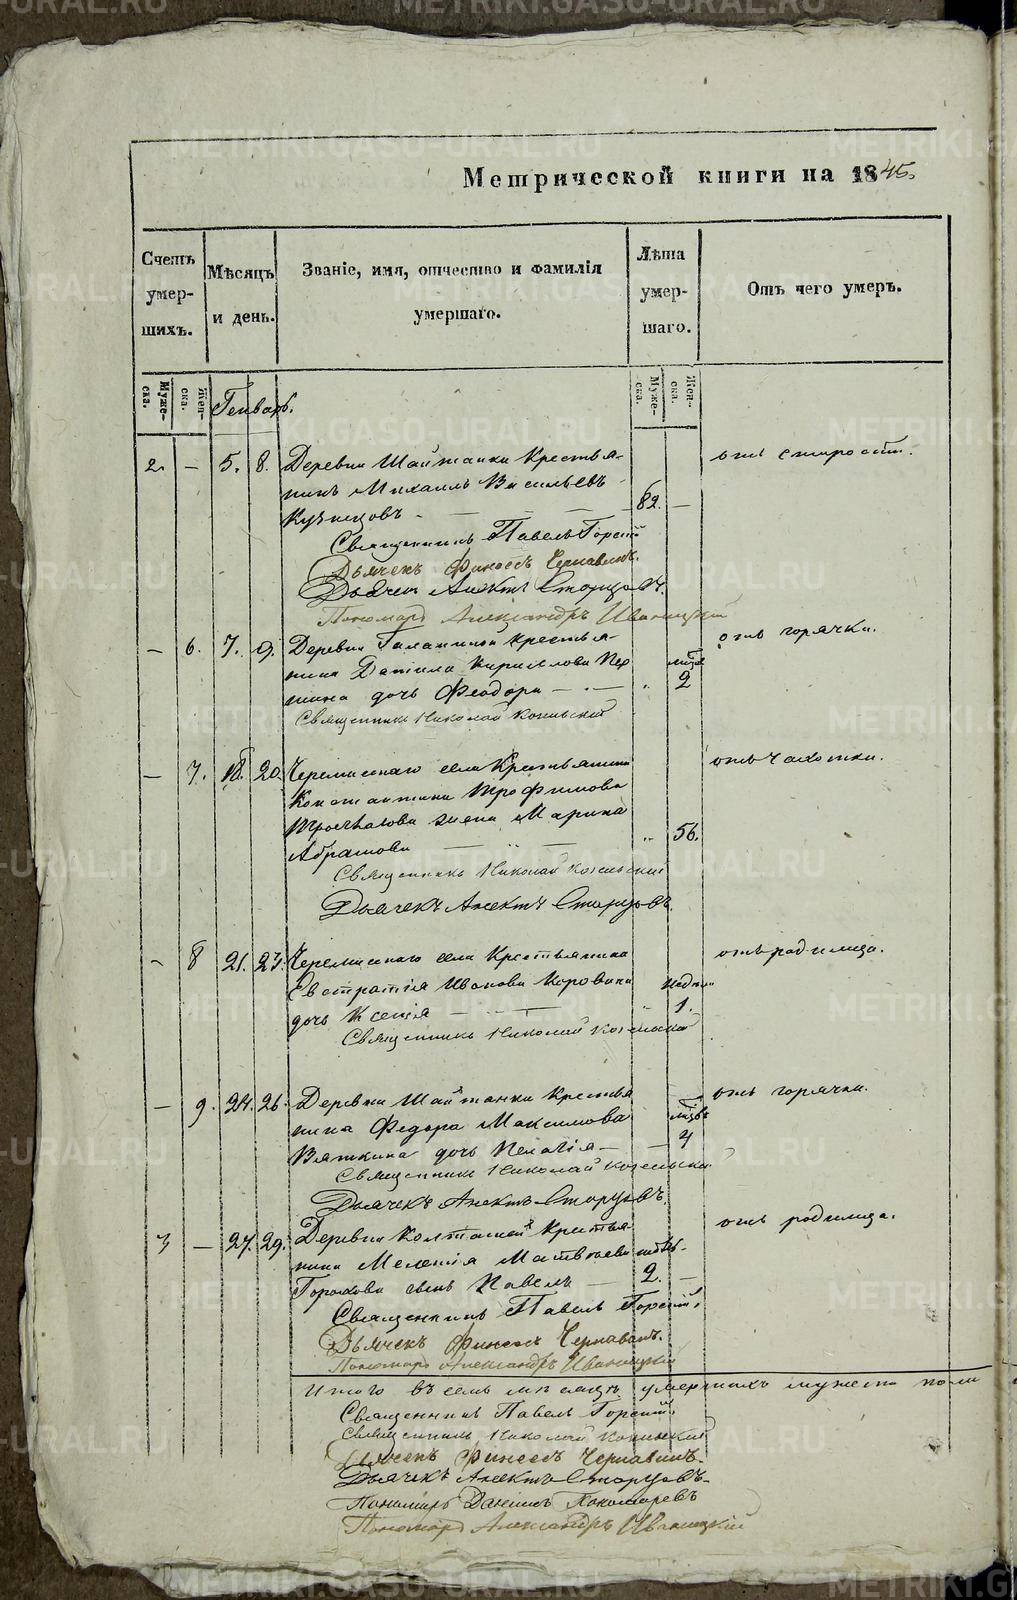 METRIKI.GASO-URAL.RU
Метрической книги на 1845.
Счетъ умер- шихъ.
Мѣсяцъ и день.
Званіе, имя, отчество и фамилія умершаго.
Лѣта умер- шаго.
Отъ чего умеръ.
Муже- ска.
Жен- ска.
Генварь.
Муже- ска.
Жен- ска.
2. — 5. 8. Деревни Шайтанки Крестья- отъ старости.
нинъ Михаилъ Васильевъ
Кузнецовъ — — — 82. —
Священникъ Павелъ Горскій
Дьячекъ Финеесъ Чернавинъ.
Дьячекъ Алект: Старцовъ.
Пономарь Александръ Иваницкій
— 6. 7. 9. Деревни крестья- отъ горячки.
нина Данила Кирилова
дочь Феодора — — 2
Священникъ Николай
— 7. 18. 20. Черемисскаго села Крестьянина отъ чахотки.
Константина Трофимова
жена Марина
Абрамова — — 56.
Священникъ Николай
Дьячекъ Алектъ Старцовъ.
— 8 21. 23. Черемисскаго села Крестьянина отъ родимца.
Евстратія Иванова Коровина
дочь Ксенія — — 1.
Священникъ Николай
— 9. 24. 26. Деревни Шайтанки Крестья отъ горячки.
нина Федора Максимова
Вяткина дочь Пелагія — —
Священникъ Николай
Дьячекъ Алектъ Старцовъ.
3 — 27. 29. Деревни Колташей Крестья отъ родимца.
нина Мелетія Матвѣева
Горохова сынъ Павелъ — 2. —
Священникъ Павелъ Горскій.
Дьячекъ Финеесъ Чернавинъ.
Пономарь Александръ Иваницкій
Итого въ семъ мѣсяцѣ умершихъ мужеска пола
Священникъ Павелъ Горскій.
Священникъ Николай
Дьячекъ Финеесъ Чернавинъ.
Дьячекъ Алектъ Старцовъ.
Пономарь Даніилъ Пономаревъ
Пономарь Александръ Иваницкій